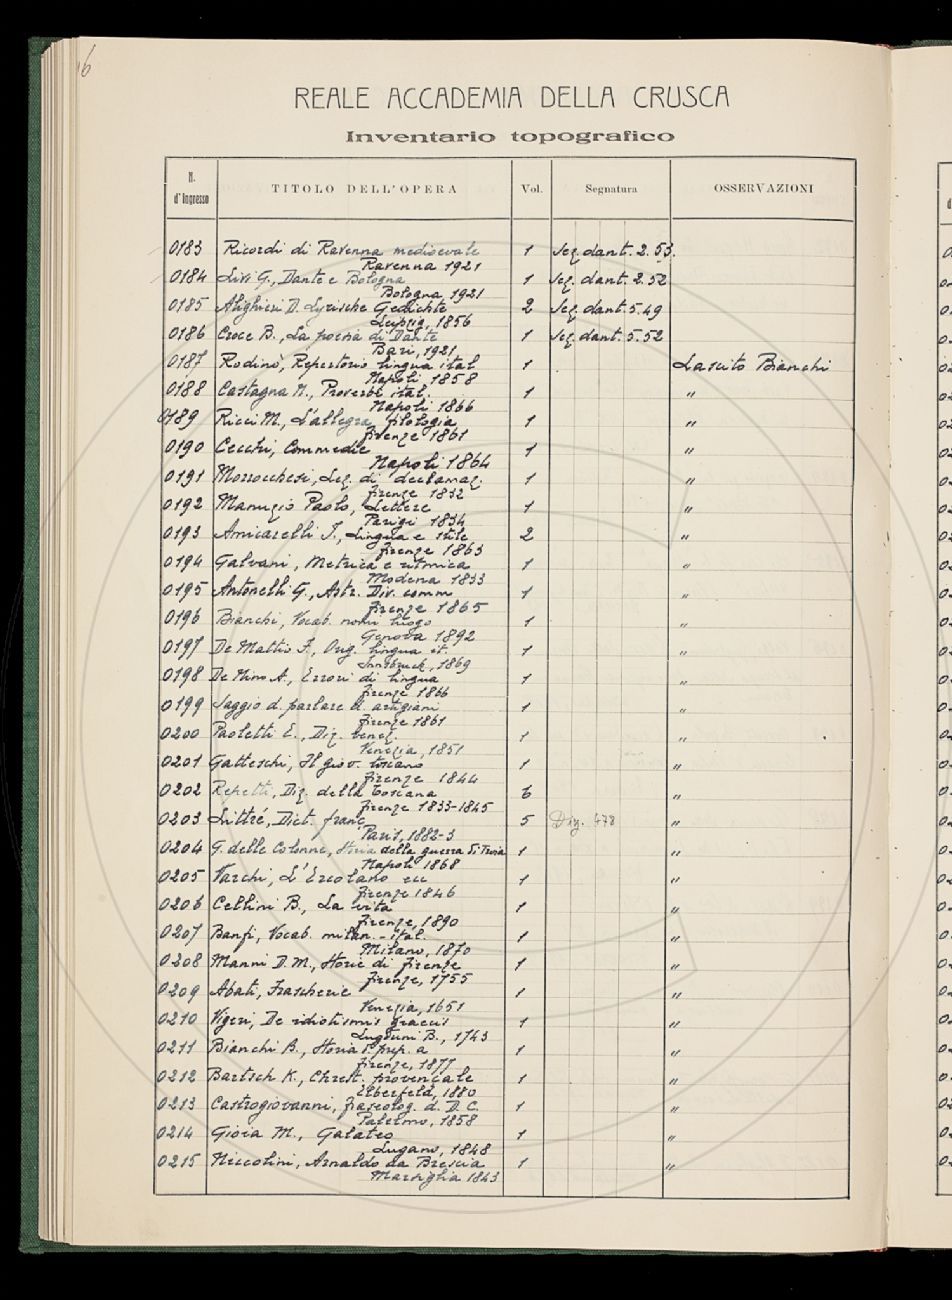 16
REALE ACCADEMIA DELLA CRUSCA
Inventario topografico
N. d'Ingresso TITOLO DELL'OPERA Vol. Segnatura OSSERVAZIONI
0183 Ricordi di Ravenna medioevale 1 Sez. dant. 2.53.
Ravenna 1921
0184 Livi G., Dante e Bologna 1 Sez. dant. 2.52
Bologna, 1921
0185 Alighieri D. Lyrische Gedichte 2 Sez. dant. 5.49
Leipzig, 1856
0186 Croce B., La poesia di Dante 1 Sez. dant. 5.52
Bari, 1921
0187 Rodinò, Repertorio lingua ital 1 Lascito Bianchi
Napoli 1858
0188 Castagna N., Proverbi ital. 1 "
Napoli 1866
0189 Ricci M., L'allegra filologia 1 "
Firenze 1861
0190 Cecchi, Commedie 1 "
Napoli 1864
0191 Morrocchesi, Lez. di declamaz. 1 "
Firenze 1832
0192 Manuzio Paolo, Lettere 1 "
Parigi 1834
0193 Amicarelli I., Lingua e stile 2 "
Firenze 1863
0194 Galvani, Metrica e ritmica 1 "
Modena 1833
0195 Antonelli G., Astr. Div. comm 1 "
Firenze 1865
0196 Bianchi, Vocab. nomi luogo 1 "
Genova 1892
0197 De Mattio F., Orig. lingua it. 1 "
Innsbruck, 1869
0198 De Nino A., Errori di lingua 1 "
Firenze 1866
0199 Saggio d. parlare d. artigiani 1 "
Firenze 1861
0200 Paoletti E., Diz. venez. 1 "
Venezia, 1851
0201 Gatteschi, Il giov. toscano 1 "
Firenze 1844
0202 Repetti, Diz. della Toscana 6 "
Firenze 1833-1845
0203 Littré, Dict. franç 5 Diz. 478 "
Paris, 1882-3
0204 G. delle Colonne, Storia della guerra di Troia 1 "
Napoli 1868
0205 Varchi, L'Ercolano ecc 1 "
Firenze 1846
0206 Cellini B., La vita 1 "
Firenze, 1890
0207 Banfi, Vocab. milan.-ital. 1 "
Milano, 1870
0208 Manni D.M., Storie di Firenze 1 "
Firenze, 1755
0209 Abati, Frascherie 1 "
Venezia, 1651
0210 Vigeri, De idiotismis graecis 1 "
Lugduni B., 1743
0211 Bianchi B., Storia d. prep. a 1 "
Firenze, 1877
0212 Bartsch K., Chrest. provençale 1 "
Elberfeld, 1880
0213 Castrogiovanni, Fraseolog. d. D.C. 1 "
Palermo, 1858
0214 Gioia M., Galateo 1 "
Lugano, 1848
0215 Niccolini, Arnaldo da Brescia 1 "
Marsiglia 1843